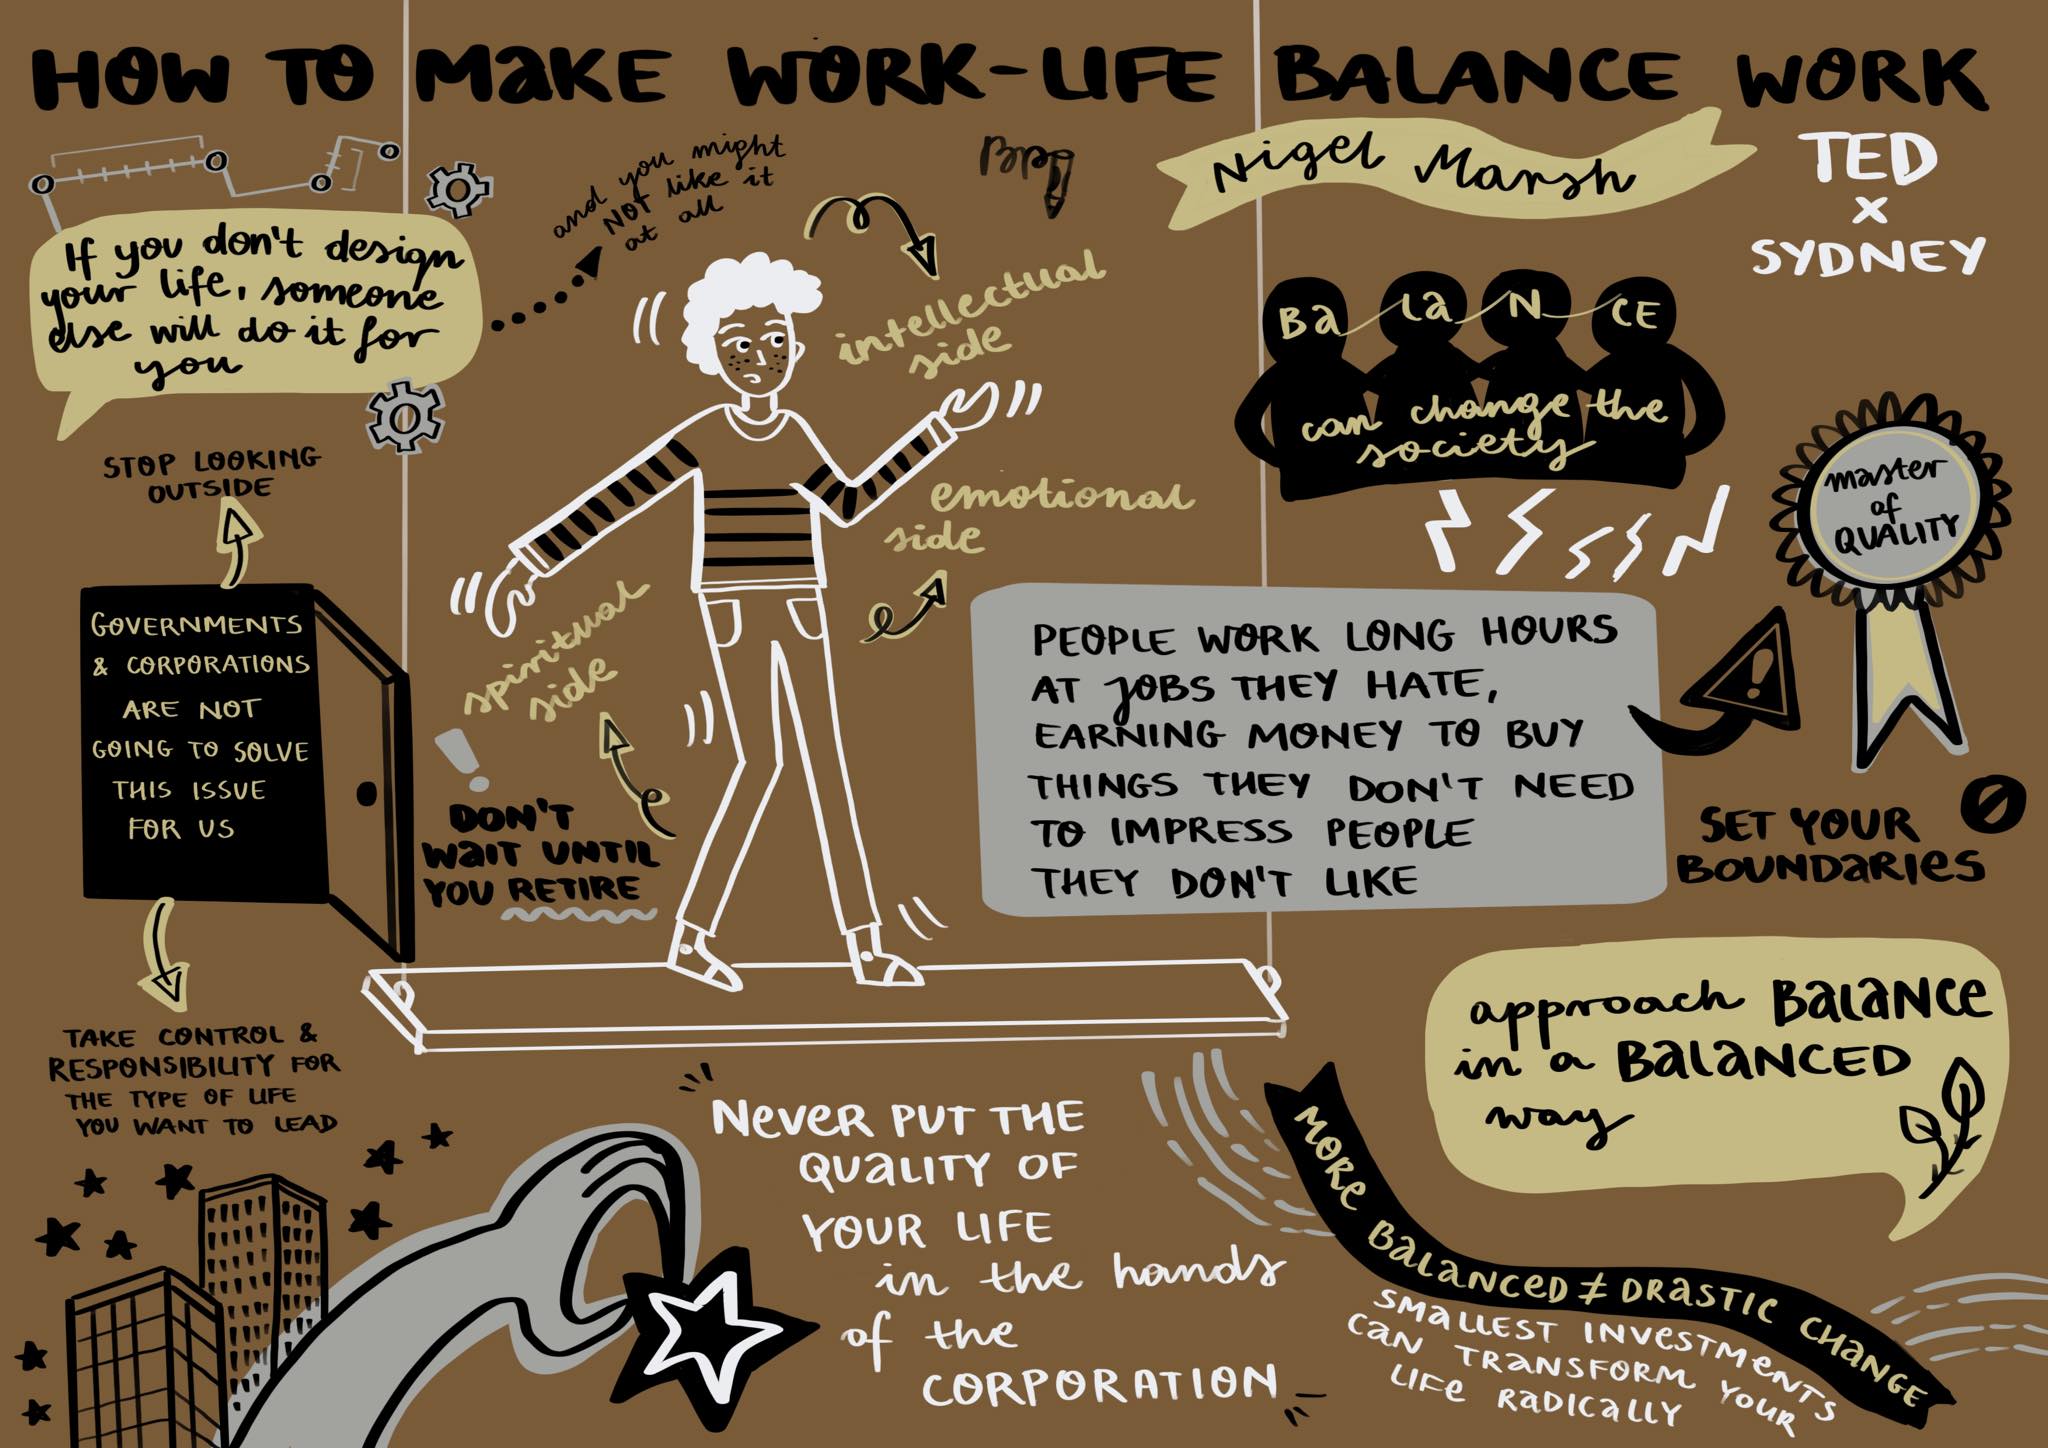 HOW TO MaKE WORK-LIFE BALANCE WORK
Nigel Marsh
TED
x
SYDNEY
If you don't design
your life, someone
else will do it for
you
and you might
NOT like it
at all
intellectual
side
emotional
side
spiritual
side
Ba La N CE
can change the
society
master
of
QUALITY
STOP LOOKING
OUTSIDE
GOVERNMENTS
& CORPORATIONS
ARE NOT
GOING TO SOLVE
THIS ISSUE
FOR US
TAKE CONTROL &
RESPONSIBILITY FOR
THE TYPE OF LIFE
YOU WANT TO LEAD
! DON'T
WaIT UNTIL
YOU RETIRE
PEOPLE WORK LONG HOURS
AT JOBS THEY HATE,
EARNING MONEY TO BUY
THINGS THEY DON'T NEED
TO IMPRESS PEOPLE
THEY DON'T LIKE
!
SET YOUR
BOUNDaRIES
approach BaLaNCe
in a BaLaNCED
way
Never PUT THE
QUaLITY OF
YOUR LIFE
in the hands
of the
CORPORATION
MORe BaLaNCED ≠ DRaSTIC CHaNGE
SMaLLEST INVeSTMeNTS
CaN TRaNSFORM YOUR
LIFe RaDICaLLY